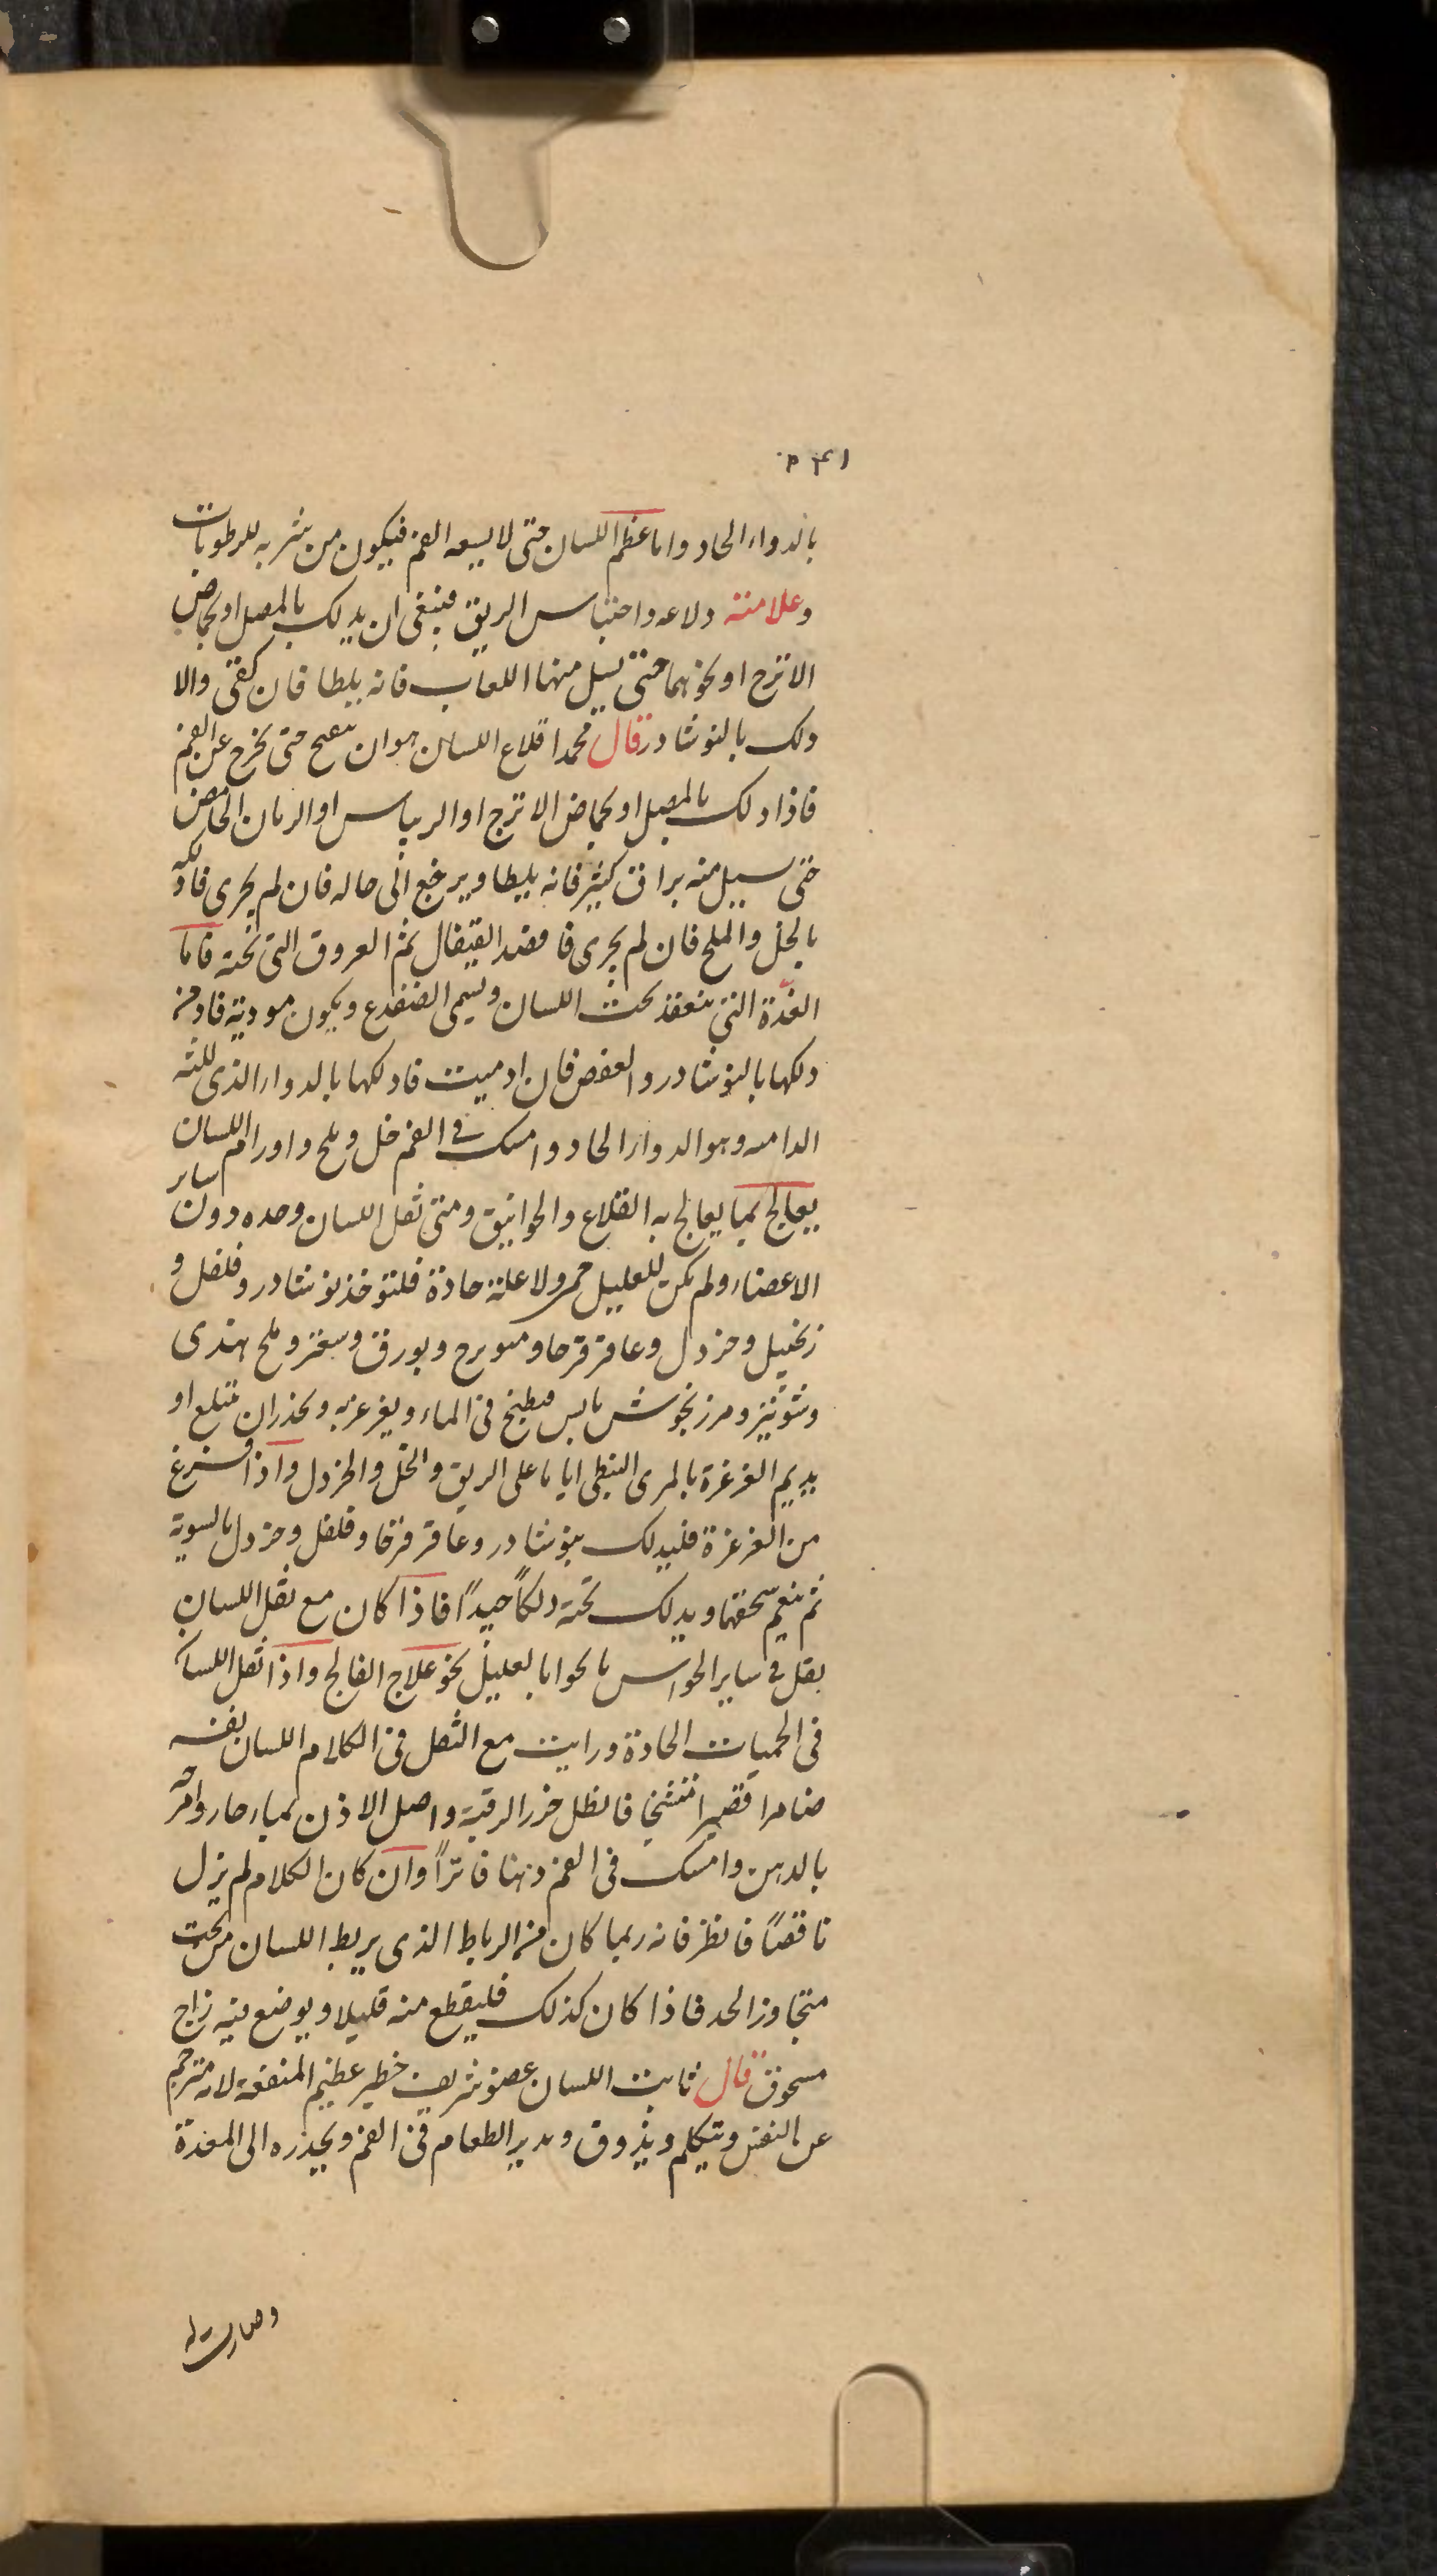 ٢٤١
بالدواء الحاد واما عظم اللسان حتى لا يسعه الفم فيكون من شربه للرطوبات
وعلامته دلاعه واحتباس الريق فينبغى ان يدلك بالمصل او بحماض
الاترج او نحوهما حتى يسيل منها اللعاب فانه يلطا فان كفى والا
دلك بالنوشادر قال محمد اقلاع اللسان هو ان حتى يخرج عن الفم
فاذا دلك بالمصل او بحماض الاترج او الريباس او الرمان الحامض
حتى يسيل منه بزاق كثير فانه يلطا ويرجع الى حاله فان لم يجرى فادلكه
بالخل والملح فان لم يجرى فافصد القيفال ثم العروق التى تحته فاما
الغدة التى تنعقد تحت اللسان وتسمى الضفدع ويكون موذية فادمن
دلكها بالنوشادر والعفص فان ادميت فادلكها بالدواء الذى للثه
الداميه وهو الدواء الحاد وامسك فى الفم خل وملح واورام اللسان
يعالج بما يعالج به القلاع والخوانيق ومتى ثقل اللسان وحده دون ساير
الاعضاء ولم يكن للعليل حمى ولا علة حادة فلتوخذ نوشادر وفلفل و
زنجبيل وخردل وعاقرقرحا وميويزج وبورق وسعتر وملح هندى
وشونيز ومرزنجوش يابس فيطبخ فى الماء ويغرغر به ويحذر ان يبتلع او
يديم الغرغرة بالمرى النبطى اياما على الريق والخل والخردل واذا فرغ
من الغرغرة فليدلك بنوشادر وعاقرقرحا وفلفل وخردل بالسوية
ثم ينعم سحقها ويدلك تحته دلكاً جيداً فاذا كان مع ثقل اللسان
ثقل فى ساير الحواس بالعليل نحو علاج الفالج واذا ثقل اللسان
فى الحميات الحادة ورايت مع الثقل فى الكلام اللسان نفسه
ضامرا قصيرا متشنجا فانطل خرز الرقبة واصل الاذن بماء حار وامرخه
بالدهن وامسك فى الفم دهنا فاتراً وان كان الكلام لم يزل
ناقصاً فانظر فانه ربما كان من الرباط الذى يربط اللسان من تحت
متجاوز الحد فاذا كان كذلك فليقطع منه قليلا ويوضع فيه زاج
مسحوق قال ثابت اللسان عضو شريف خطير عظيم المنفعة لانه مترجم
عن النفس ويتكلم ويذوق ويدير الطعام فى الفم ويحدره الى المعدة
وصارت له